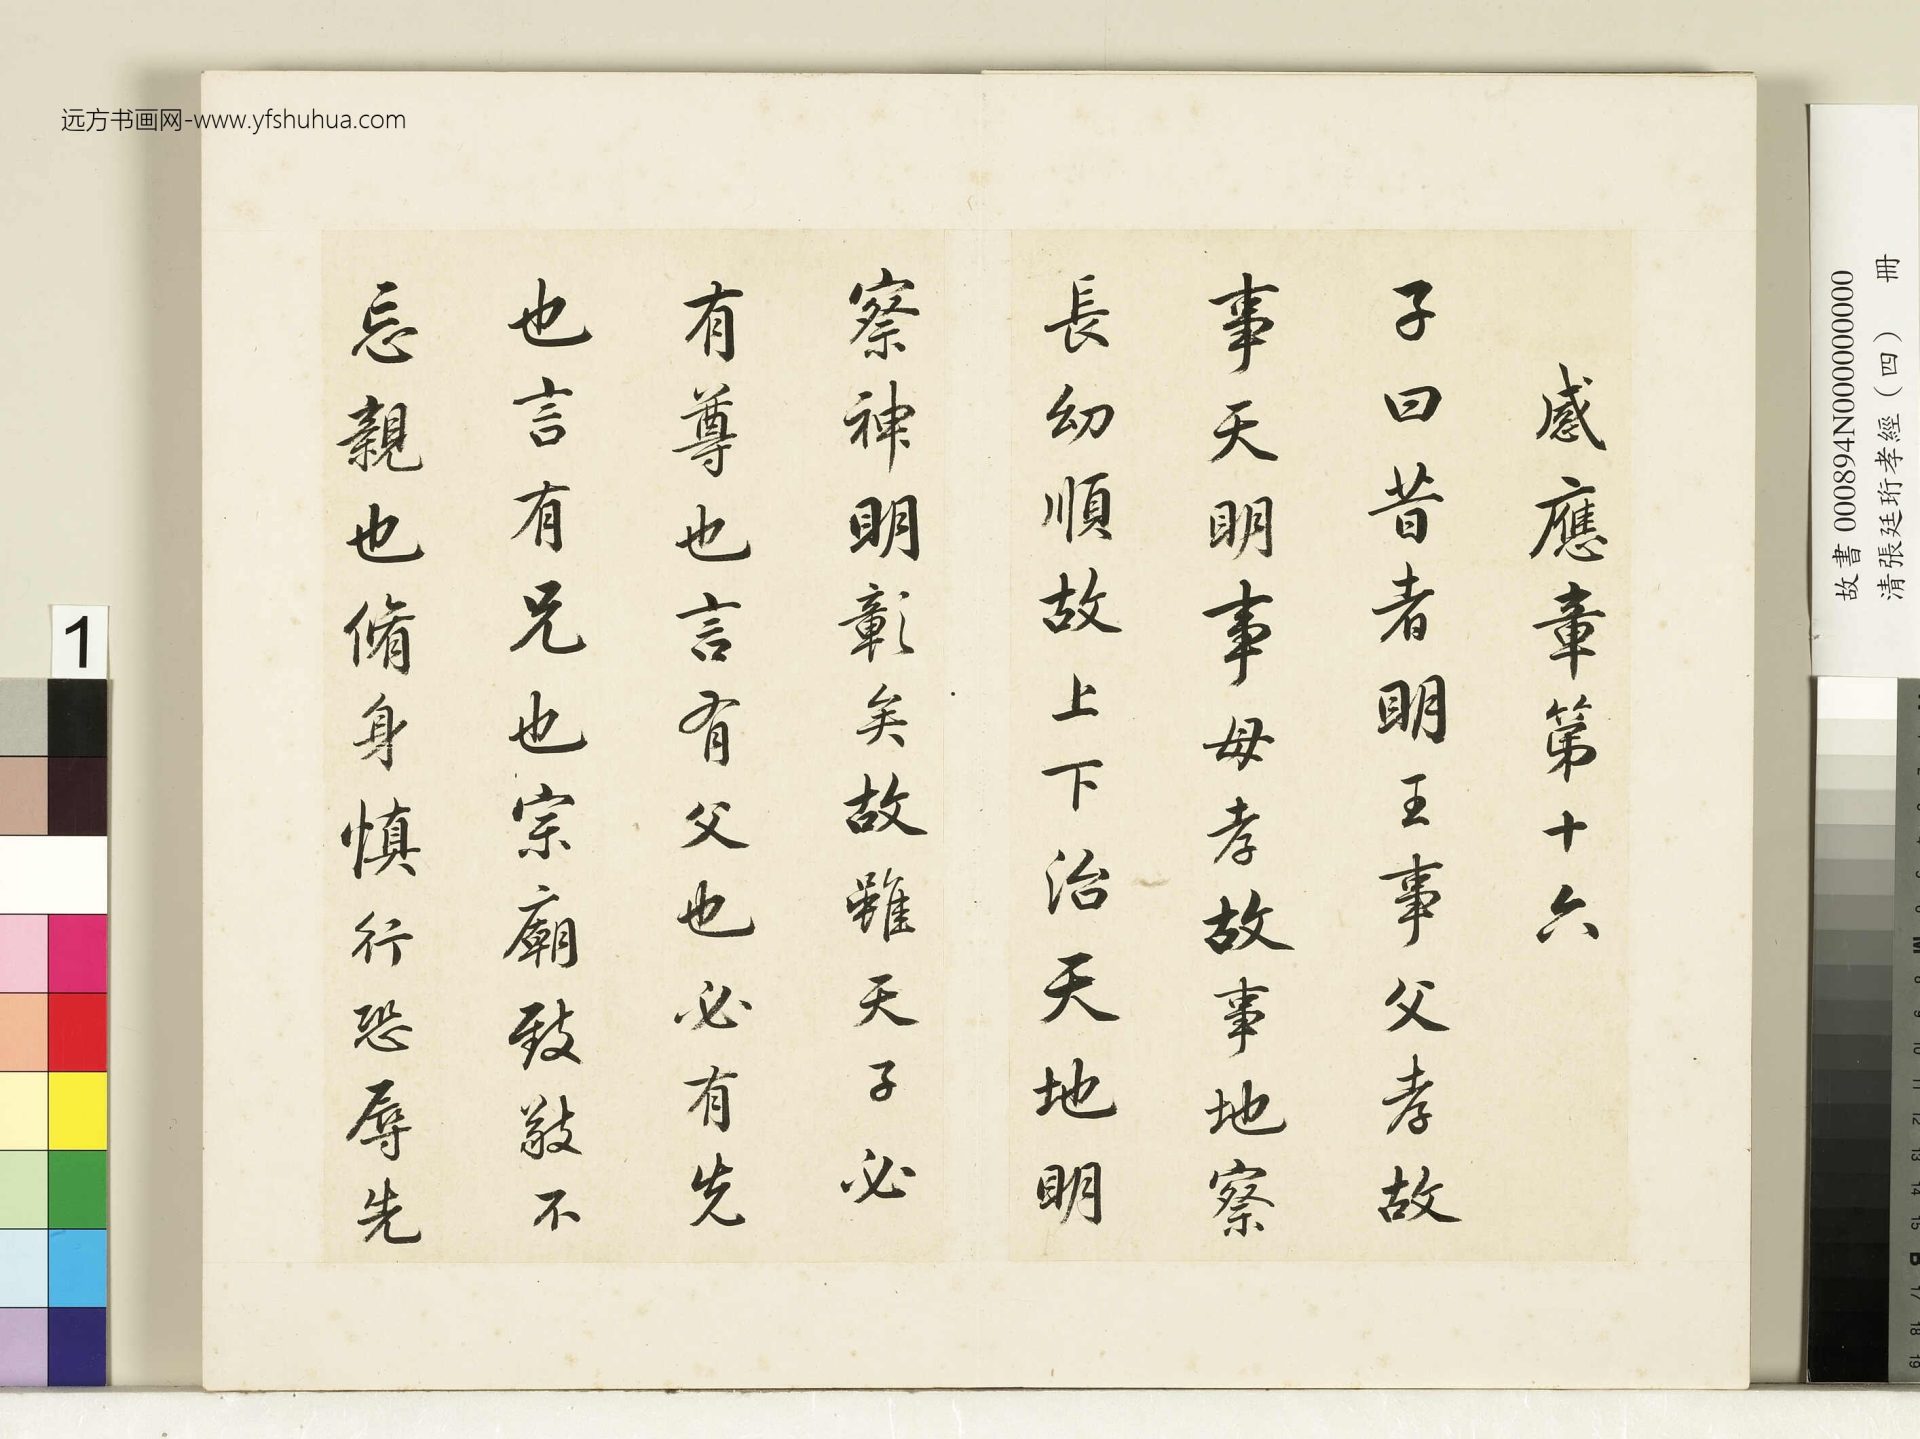 远方书画网-www.yfshuhua.com
感應章第十六
子曰昔者明王事父孝故
事天明事母孝故事地察
長幼順故上下治天地明
察神明彰矣故雖天子必
有尊也言有父也必有先
也言有兄也宗廟致敬不
忘親也脩身慎行恐辱先
故書 000894N000000000
清張廷珩孝經（四） 冊
1
M
8
9
10
11
12
13
14
15
B
17
18
19